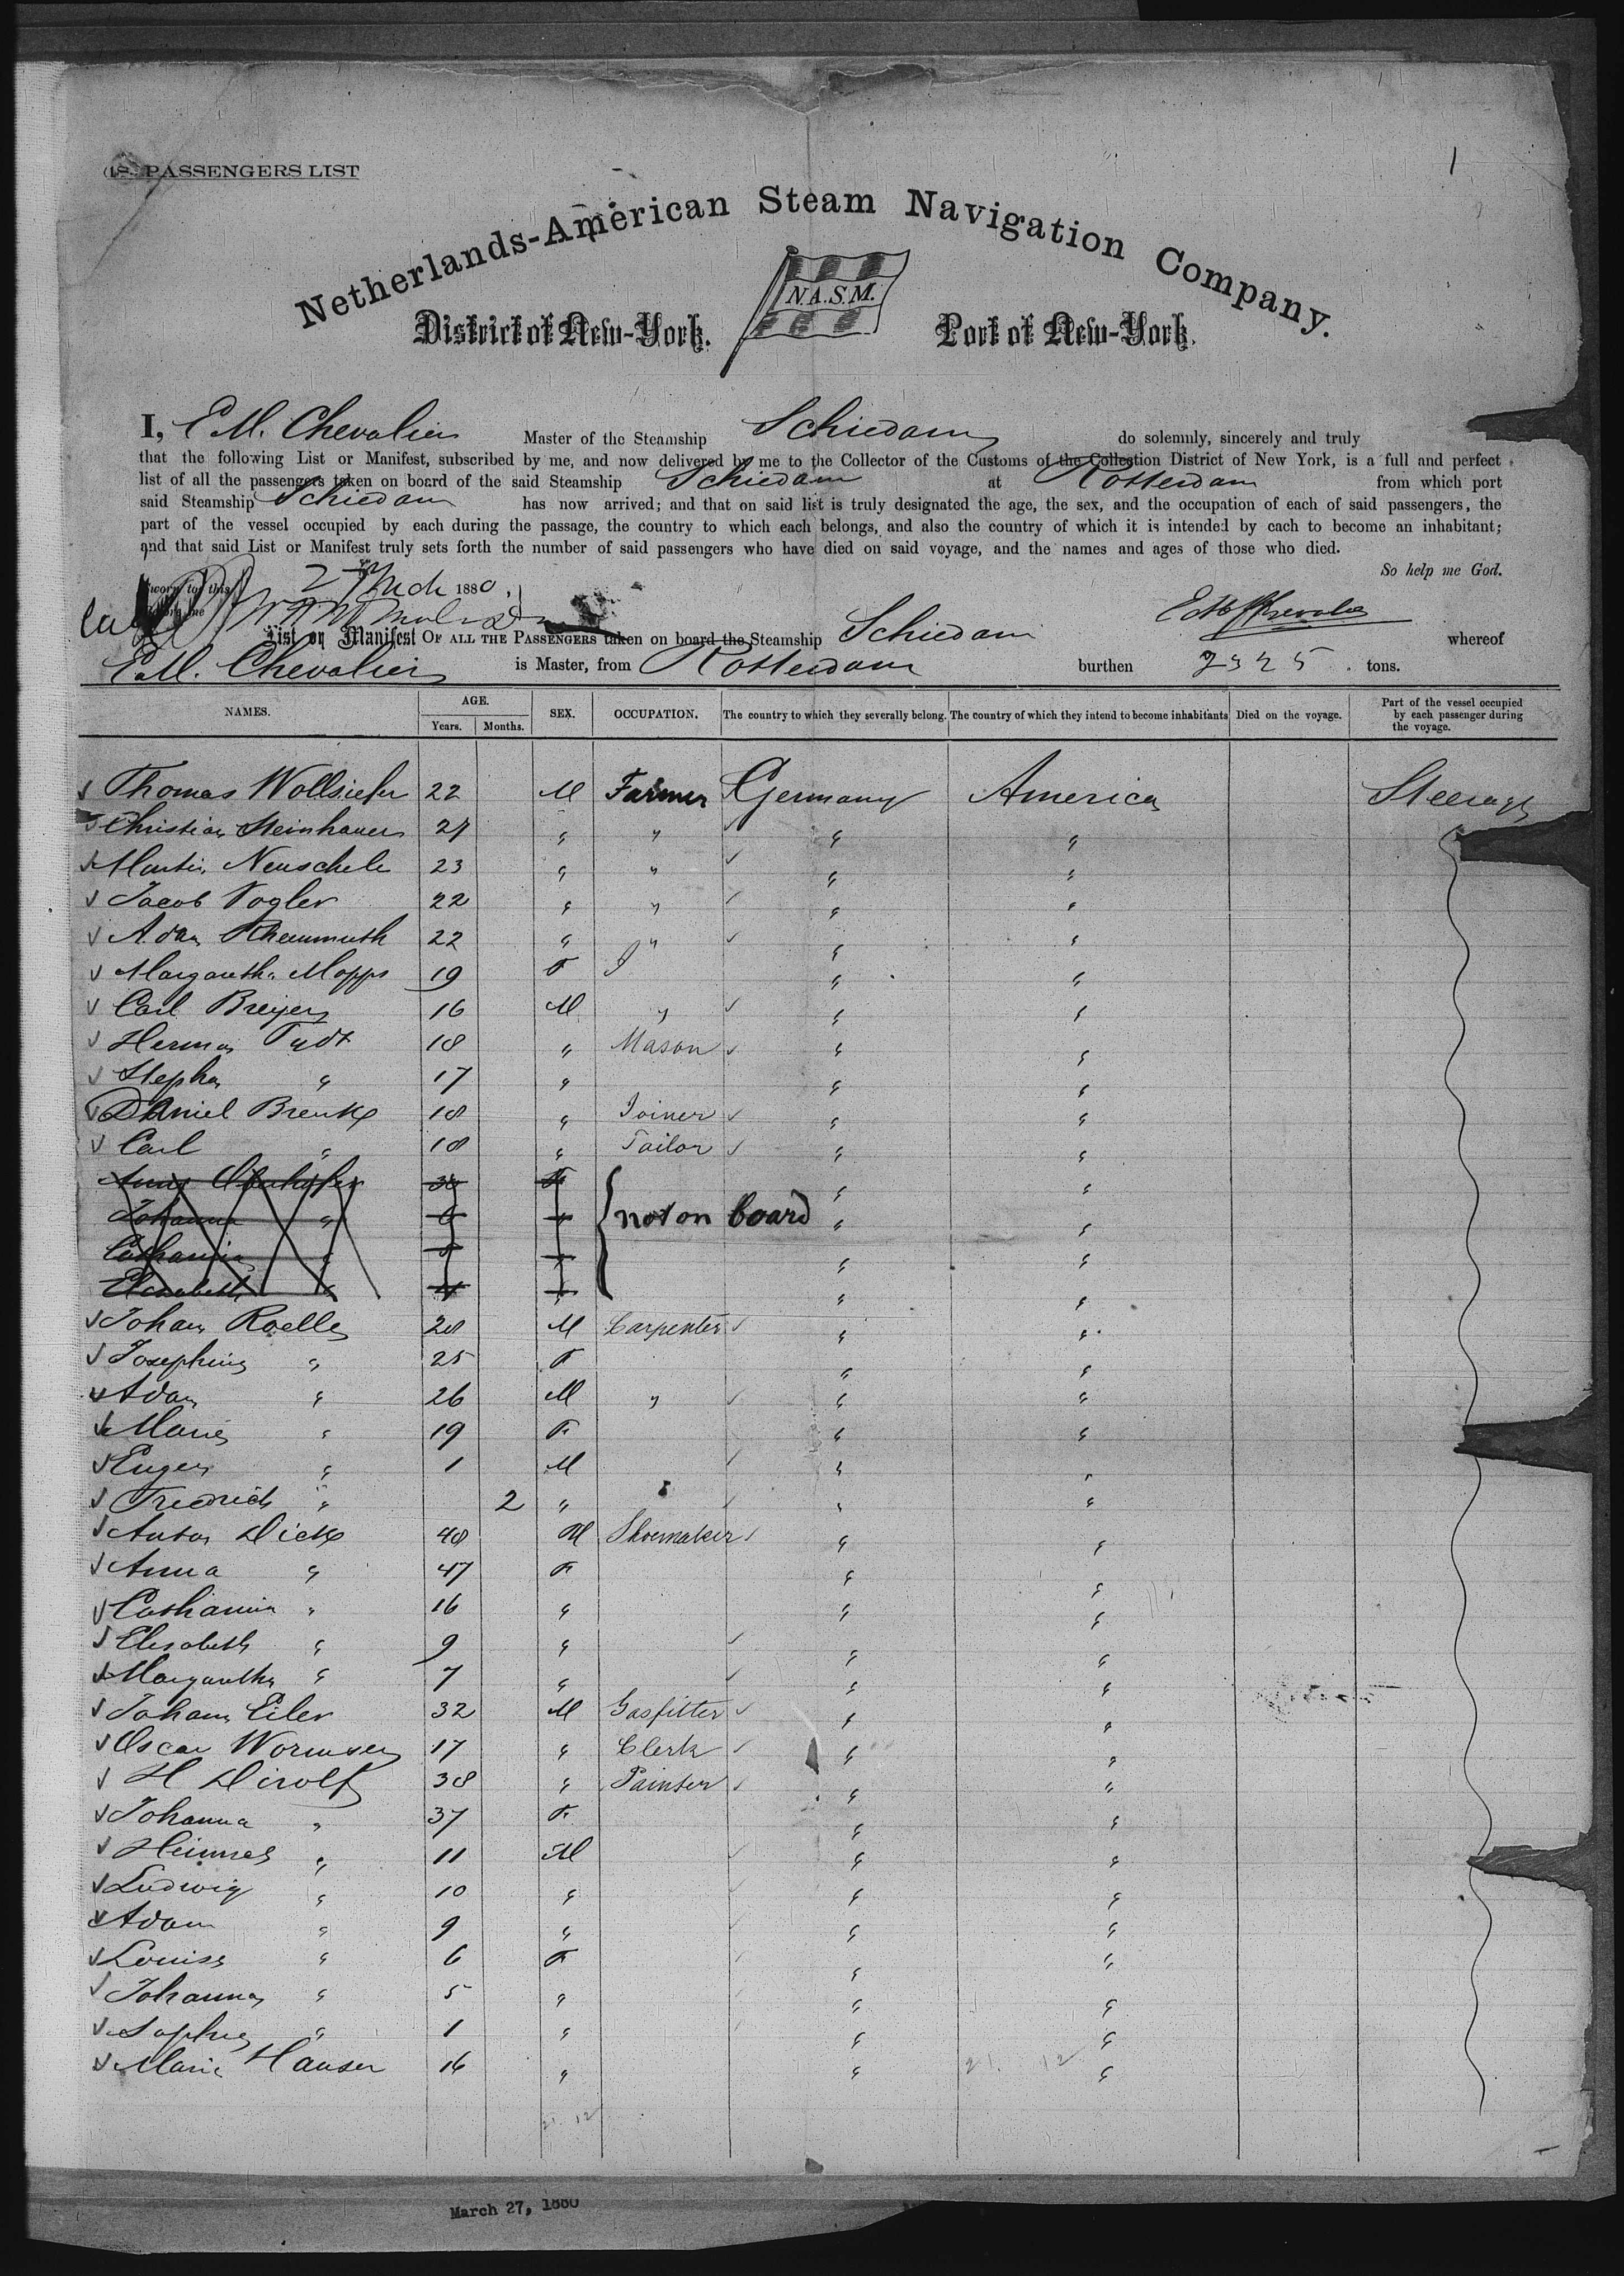 PASSENGERS LIST
1
Netherlands-American Steam Navigation Company.
N.A.S.M.
District of New-York. Port of New-York.
I, E.M. Chevalier Master of the Steamship Schiedam do solemnly, sincerely and truly
that the following List or Manifest, subscribed by me, and now delivered by me to the Collector of the Customs of the Collection District of New York, is a full and perfect
list of all the passengers taken on board of the said Steamship Schiedam at Rotterdam from which port
said Steamship Schiedam has now arrived; and that on said list is truly designated the age, the sex, and the occupation of each of said passengers, the
part of the vessel occupied by each during the passage, the country to which each belongs, and also the country of which it is intended by each to become an inhabitant;
and that said List or Manifest truly sets forth the number of said passengers who have died on said voyage, and the names and ages of those who died.
So help me God.
Sworn to this 27 March 1880.
before me
List or Manifest OF ALL THE PASSENGERS taken on board the Steamship Schiedam whereof
E.M. Chevalier is Master, from Rotterdam burthen tons.
NAMES. AGE. Years. Months. SEX. OCCUPATION. The country to which they severally belong. The country of which they intend to become inhabitants Died on the voyage. Part of the vessel occupied by each passenger during the voyage.
Thomas Wollsiefer 22 M Farmer Germany America Steerage
Christian Steinhauer 27 " " " "
Martin Neuschele 23 " " " "
Jacob Vogler 22 " " " "
Adam Rheinmuth 22 " " " "
Margaretha Mopps 19 F " "
Carl Breyer 16 M " " "
Herman 18 " Mason " "
Stephan " 17 " " "
Daniel Brenke 18 " Joiner " "
Carl " 18 " Tailor " "
Anna Oberhofer 30 F not on board " "
Johanna " 6 " " "
Catharina " " " "
Elisabeth " " " "
Johann Roelle 28 M Carpenter " "
Josephine " 25 F " "
Adam " 26 M " " "
Marie " 19 F " "
Eugen " 1 M " "
Friedrich " 2 " " "
Anton Dicke 48 M Shoemaker " "
Anna " 47 F " "
Catharina " 16 " " "
Elisabeth " 9 " " "
Margaretha " 7 " " "
Johann Eiler 32 M Gasfitter " "
Oscar Wormser 17 " Clerk " "
H Dirolf 38 " Painter " "
Johanna " 37 F " "
Heinrich " 11 M " "
Ludwig " 10 " " "
Adam " 9 " " "
Louise " 6 F " "
Johanna " 5 " " "
Sophie " 1 " " "
Marie Hauser 16 " " "
21. 12
21. 12
March 27, 1880